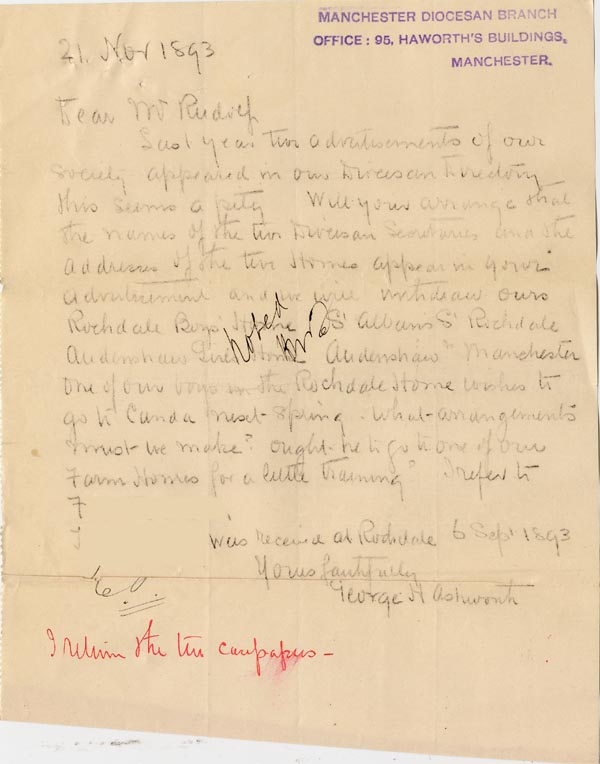 MANCHESTER DIOCESAN BRANCH
OFFICE: 95, HAWORTH'S BUILDINGS,
MANCHESTER.
21. Nov 1893
Dear Mr Rudolf
Last year two advertisements of our
society appeared in our Diocesan Directory
this seems a pity Will you arrange that
the names of the two Diocesan Secretaries and the
addresses of the two Homes appear in your
advertisement and we will withdraw ours
Rochdale Boys' Home St Albans St Rochdale
Audenshaw Girls Home Audenshaw Manchester
noted
One of our boys in the Rochdale Home wishes to
go to Canda next spring. What arrangements
must we make? ought he to go to one of our
Farm Homes for a little training" I refer to
F
J
was received at Rochdale 6 Sept 1893
Yours faithfully
George H Ashworth
I return the two casepapers -